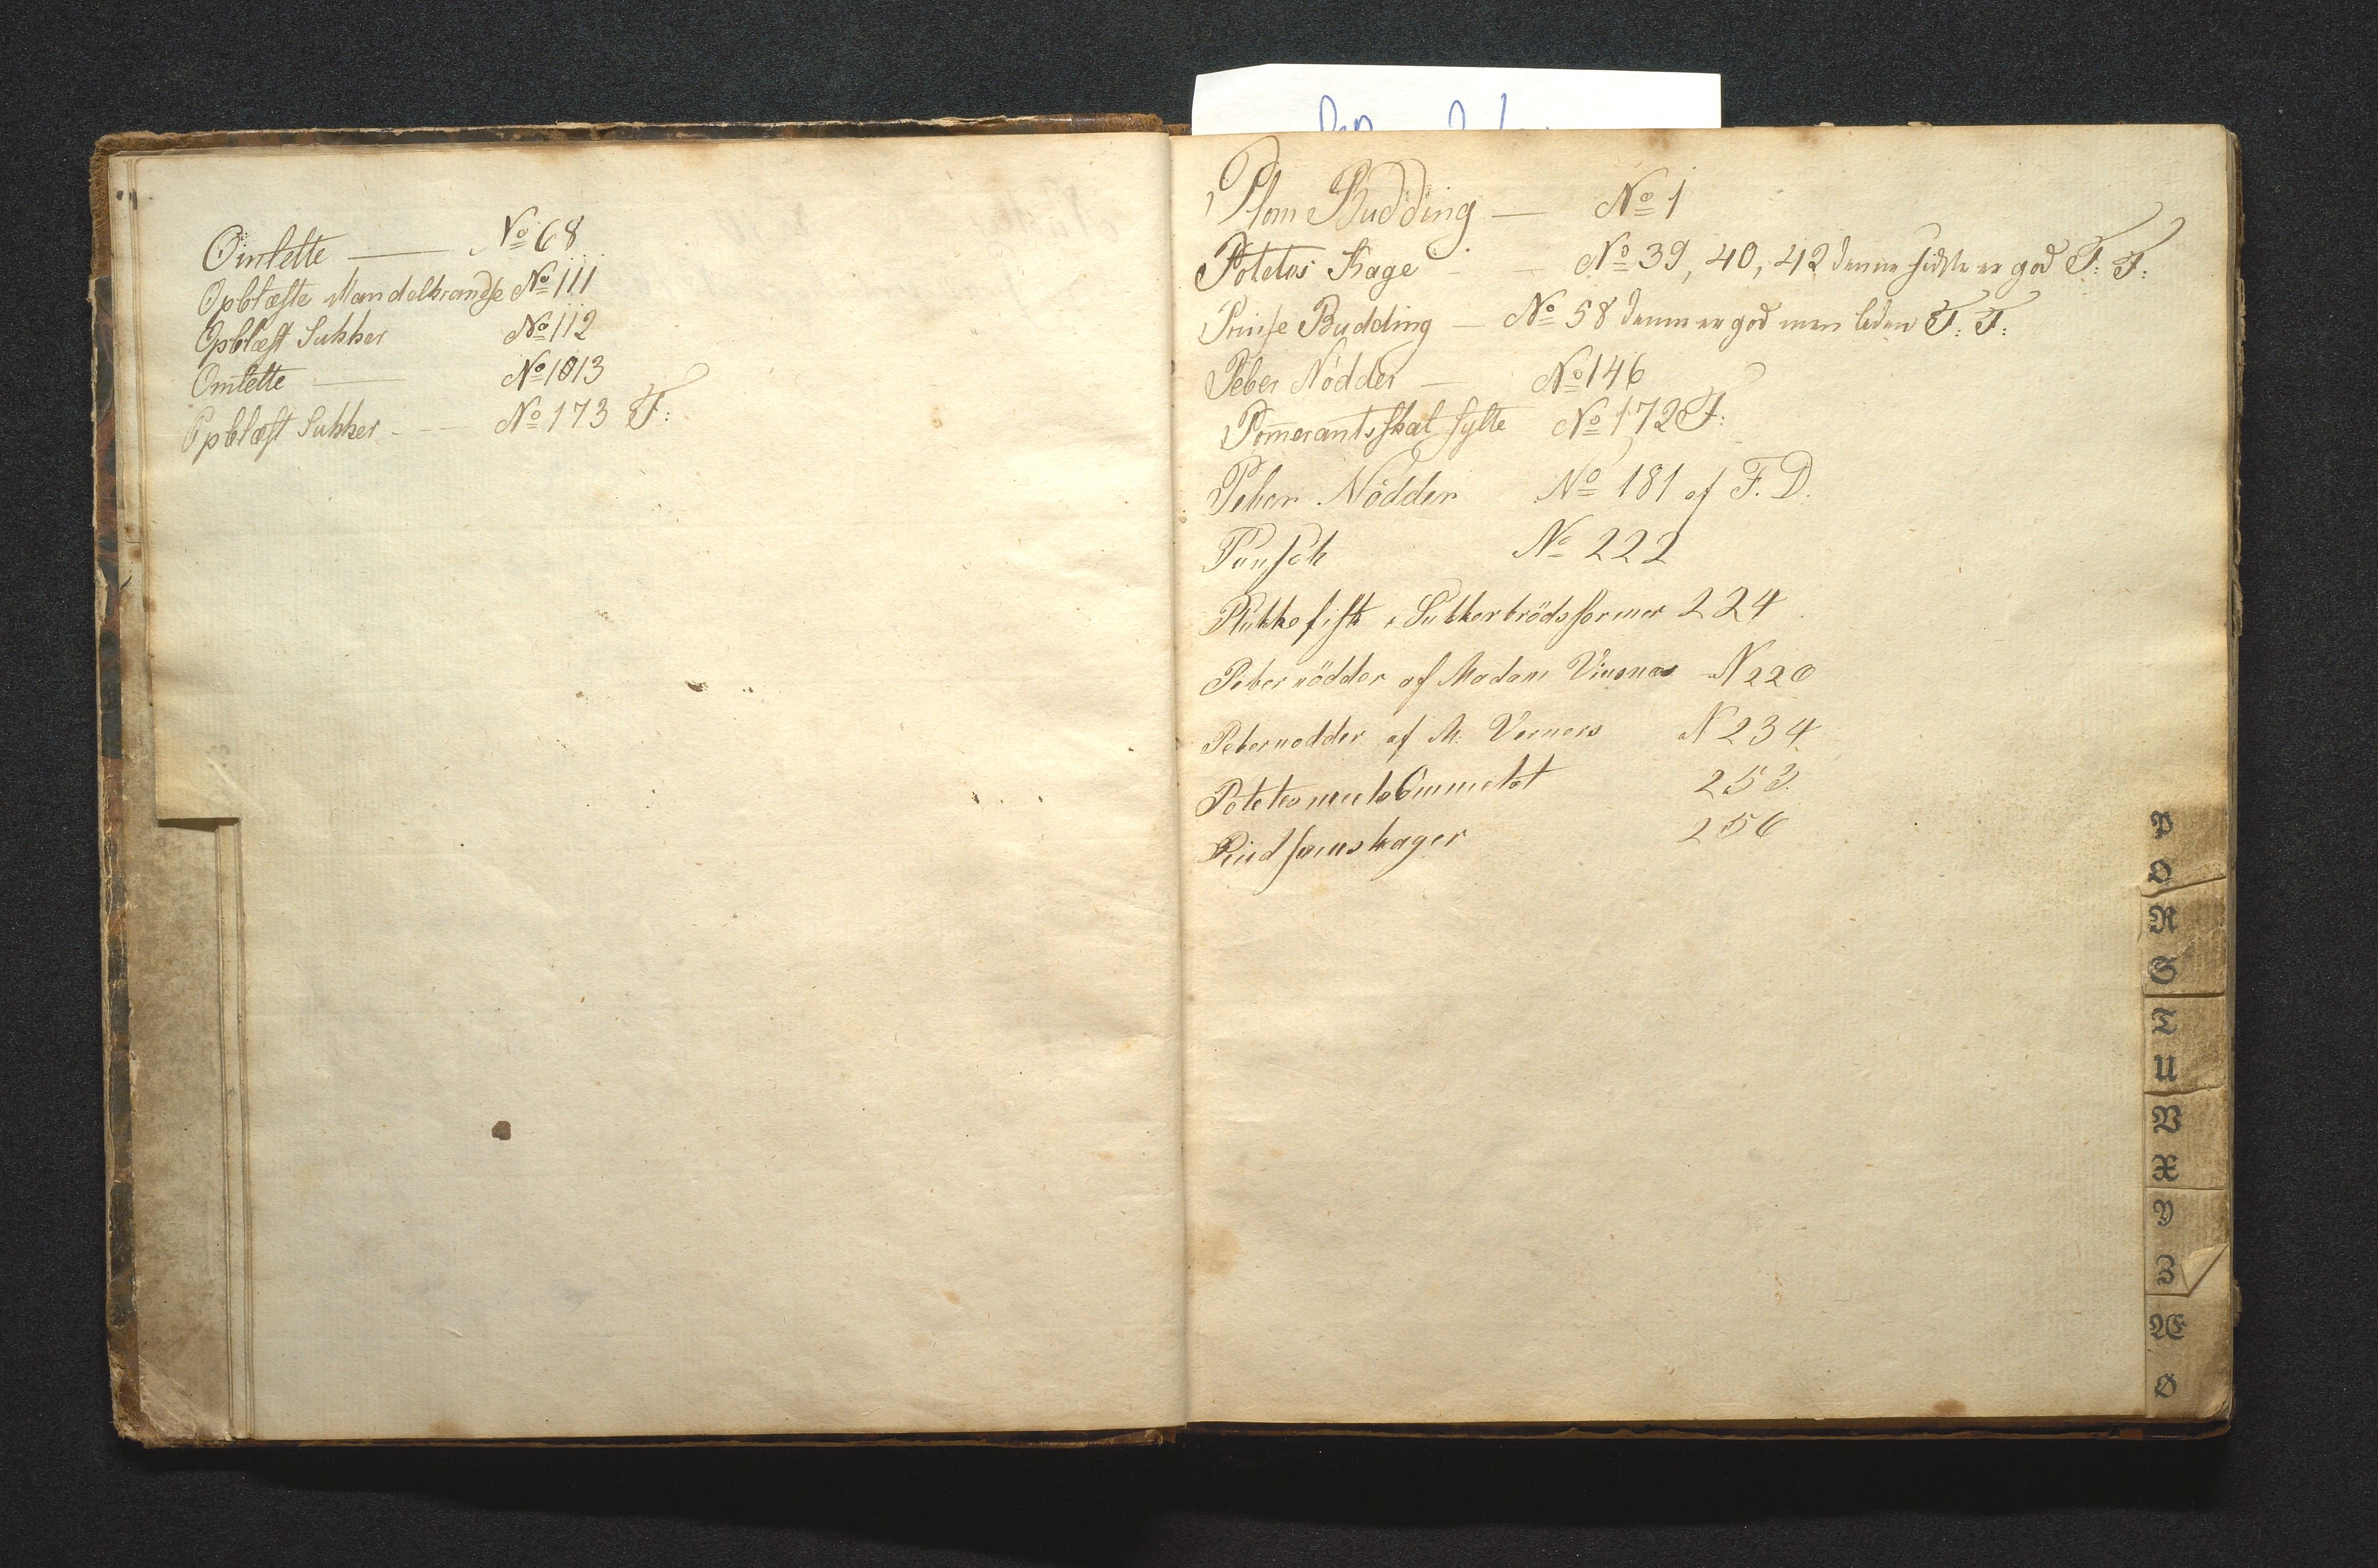 Omlette — No 68
Opblæste Mandelkrandse No 111
Opblæst Sukker No 112
Omlette — No 1013
Opblæst Sukker - — No 173 F:
Plom Budding — No 1
Potetos Kage - — No 39, 40, 42 denne sidste er god F: F:
Prinse Budding — No 58 denne er god men liden F: F:
Peber Nødder — No 146
Pom̅erants skal sylte No 172 F:
Peber Nödder No 181 af F. D.
Punsch No 222
Plukkefisk i Sukkerbrödsformer 224
Pebernödder af Madam N 220
Pebernødder af M: Verners N 234
Potetesmeels Ommelet 253.
256
P
Q
R
S
T
U
V
X
Y
Z
Æ
Ø